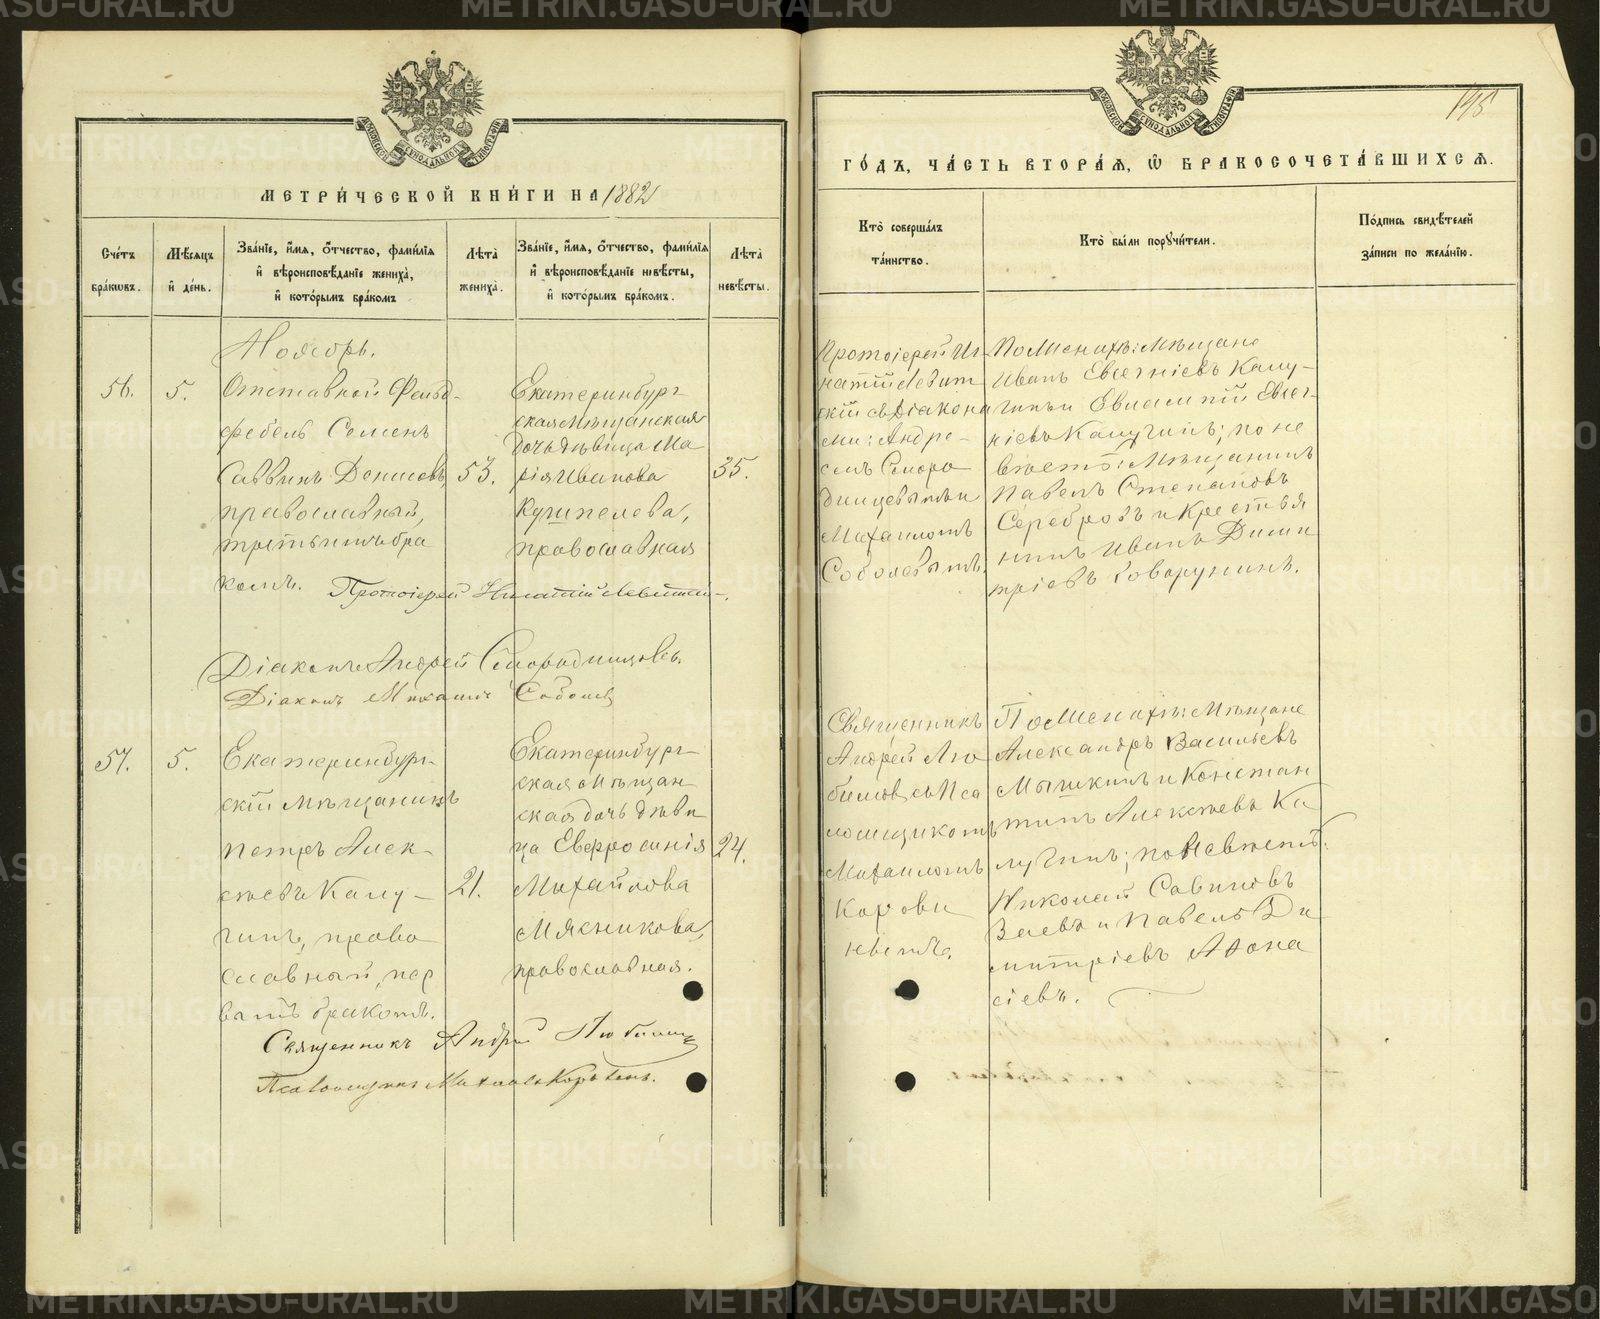 МЕТРИ́ЧЕСКОЙ КНИ́ГИ НА 1882
Сче́тъ бра́кωвъ.
Мѣ́сяцъ и҆ де́нь.
Зва́нїе, и҆́мѧ, ѻ҆́тчество, фами́лїѧ и҆ вѣроисповѣ́данїе жениха̀, и҆ кото́рымъ бра́комъ
Лѣ́та жениха̀.
Зва́нїе, и҆́мѧ, ѻ҆́тчество, фами́лїѧ и҆ вѣроисповѣ́данїе невѣ́сты, и҆ кото́рымъ бра́комъ.
Лѣ́та невѣ́сты.
Ноябрь.
56.
5.
Отставной Фельд-
фебель Семенъ
Саввинъ Денисовъ,
православный,
третьимъ бра
комъ.
53.
Екатеринбург
ская мѣщанская
дочь дѣвица Ма
рія Иванова
православная
35.
Протоіерей Игнатій Левитскій.
Діаконъ Андрей Смородинцовъ.
Діаконъ Михаилъ Соболев
57.
5.
Екатеринбург-
скій мѣщанинъ
Петръ Алек-
сѣевъ Калу-
гинъ, право
славный, пер
вымъ бракомъ.
21.
Екатеринбург
ская мѣщан
ская дочь дѣви
ца Евфросинія
Михайлова
Мясникова,
православная.
24.
Священникъ Андрей Любимов
Псаломщикъ Михаилъ Коровинъ.
145
ГО́ДЪ, ЧА́СТЬ ВТОРА́Ѧ, Ѡ҆ БРАКОСОЧЕТА́ВШИХСѦ.
Кто̀ соверша́лъ та́инство.
Кто̀ бы́ли порꙋчи́тели.
По́дпись свидѣ́телей за́писи по жела́нїю.
Протоіерей Иг-
натій Левит
скій съ Діакона
ми: Андре-
емъ Сморо
динцевымъ и
Михаиломъ
Соболевымъ.
По женихѣ: мѣщане
Иванъ Евгеніевъ Калу-
гинъ и Евлампій Евге-
ніевъ Калугинъ; по не
вѣстѣ: мѣщанинъ
Павелъ Степановъ
Серебровъ и Крестья
нинъ Иванъ Дими
тріевъ
Священникъ
Андрей Лю
бимовъ съ Пса
ломщикомъ
Михаиломъ
Корови
нымъ.
По женихѣ: мѣщане
Александръ Васильевъ
Мышкинъ и Констан
тинъ Алексѣевъ Ка
лугинъ; по невѣстѣ:
Николай Савиновъ
Заевъ и Павелъ Ди
митріевъ Афона
сіевъ.